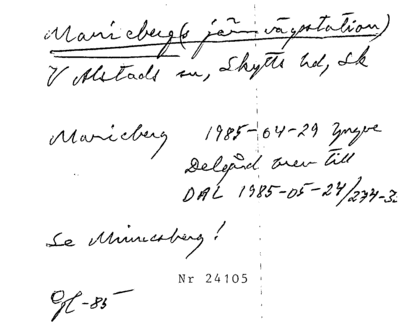 Marieberg(s järnvägsstation)
V Alstads sn, Skytts hd, Sk
Marieberg 1985-04-29 Yngve
Delgård brev till
DAL 1985-05-24/274-3
Se Minnesberg!
Nr 24105
-85